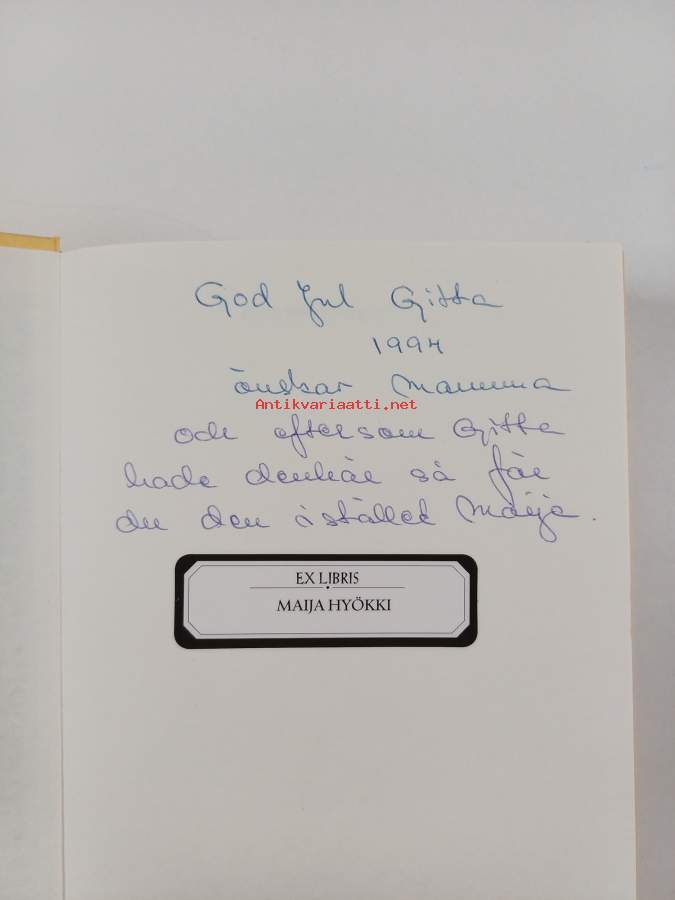 God Jul Gitta
1994
önskar Mamma
Antikvariaatti.net
och eftersom Gitta
hade denhär så får
du den istället Maija.
EX LIBRIS
MAIJA HYÖKKI